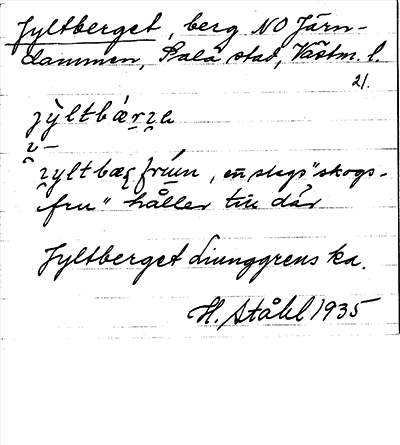 Jyltberget, berg NO Järn-
dammen, Sala stad, Västm. l.
21.
jỳltbár̥ʒa
ʒyltbæʂfrúin, en slags "skogs-
fru" håller till där
Jyltberget Ljunggrens ka.
H. Ståhl 1935